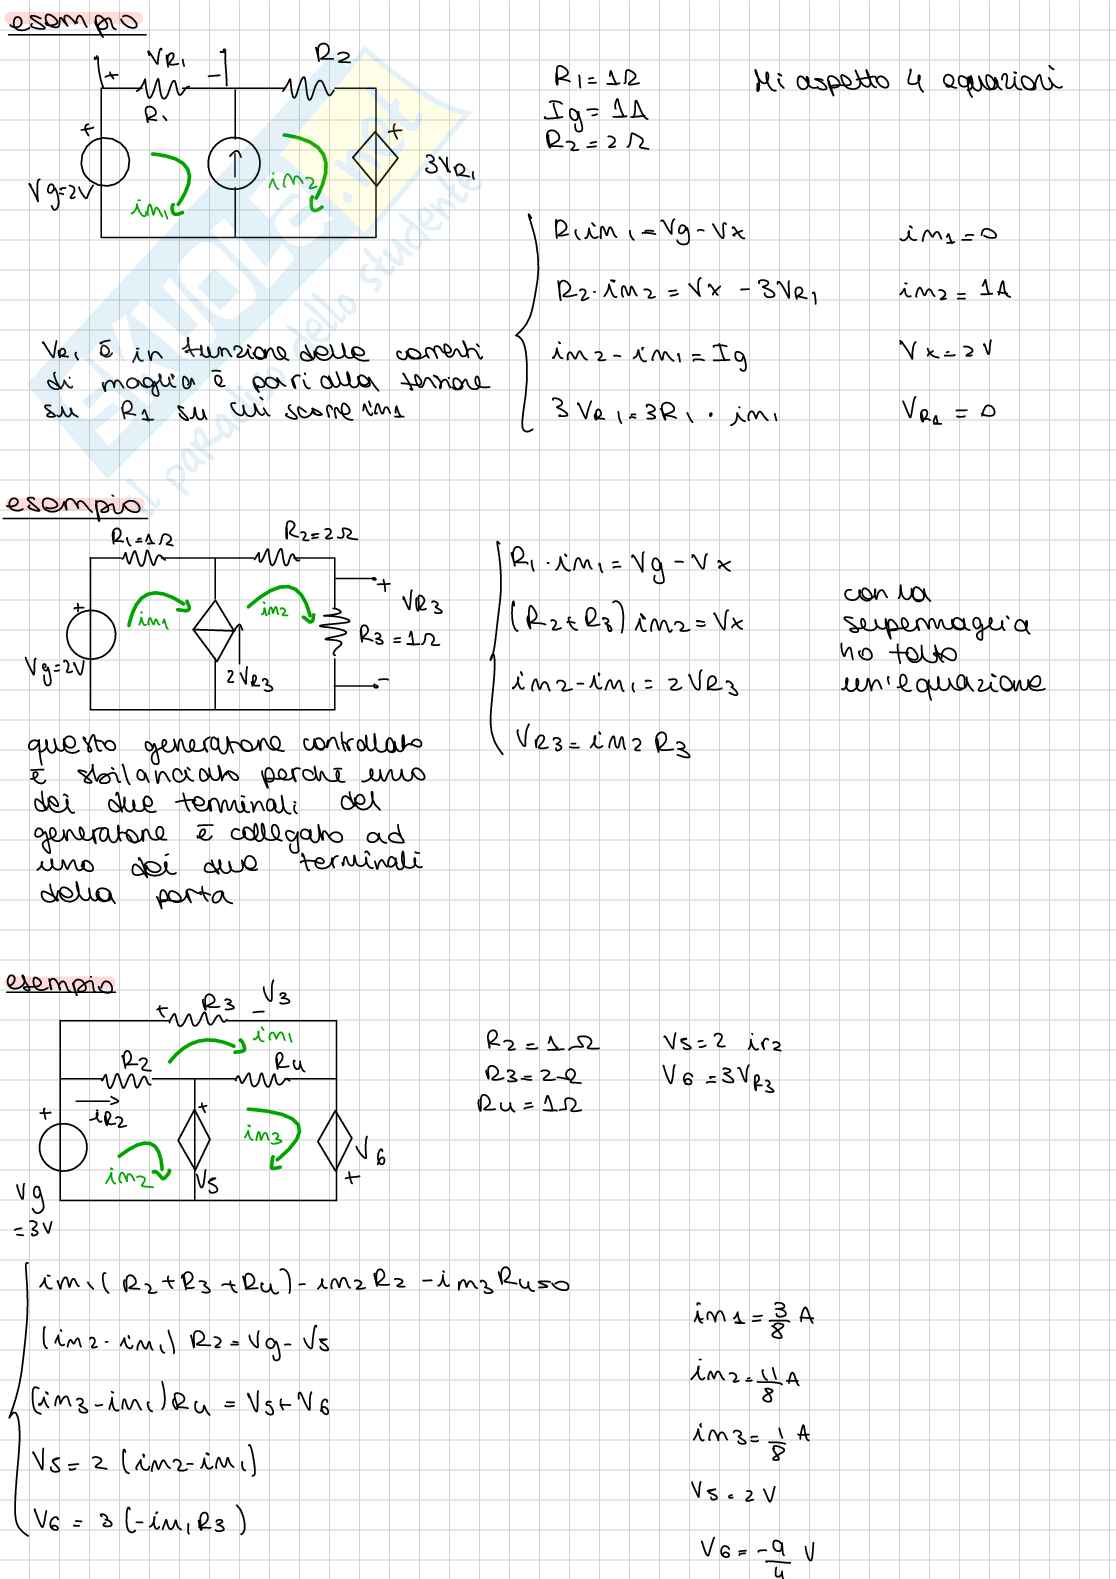 esempio
VR1
R2
+
-
R1
+
+
Vg=2V
im1
im2
3VR1
R1 = 1Ω
Ig = 1A
R2 = 2Ω
Mi aspetto 4 equazioni
R1 im1 = Vg - Vx
im1 = 0
R2 · im2 = Vx - 3VR1
im2 = 1A
im2 - im1 = Ig
Vx = 2V
3VR1 = 3R1 · im1
VR1 = 0
VR1 è in funzione delle correnti
di maglia è pari alla tensione
su R1 su cui scorre im1
esempio
R1=1Ω
R2=2Ω
+
im1
im2
+
VR3
R3=1Ω
Vg=2V
2VR3
-
R1 · im1 = Vg - Vx
(R2 + R3) im2 = Vx
im2 - im1 = 2VR3
VR3 = im2 R3
con la
supermaglia
ho tolto
un'equazione
questo generatore controllato
è sbilanciato perché uno
dei due terminali del
generatore è collegato ad
uno dei due terminali
della porta
esempio
+
R3
-
V3
im1
R2
R4
iR2
+
+
im3
im2
V5
V6
+
Vg
=3V
R2 = 1Ω
R3 = 2Ω
R4 = 1Ω
V5 = 2 ir2
V6 = 3VR3
im1(R2+R3+R4) - im2R2 - im3R4=0
(im2 - im1) R2 = Vg - V5
(im3 - im1)R4 = V5 + V6
V5 = 2 (im2 - im1)
V6 = 3 (-im1R3)
im1 = 3/8 A
im2 = 11/8 A
im3 = 1/8 A
V5 = 2V
V6 = -9/4 V
SKUOLA.net
il paradiso dello studente